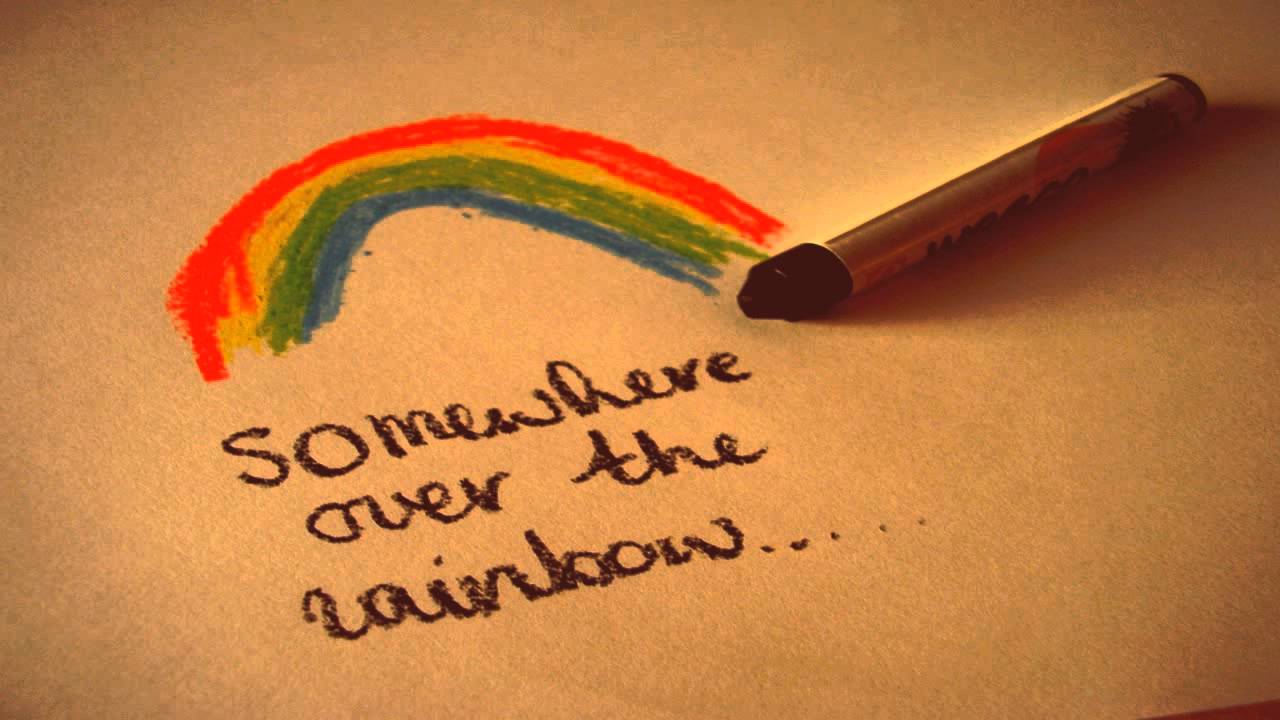 Somewhere
over the
rainbow.......